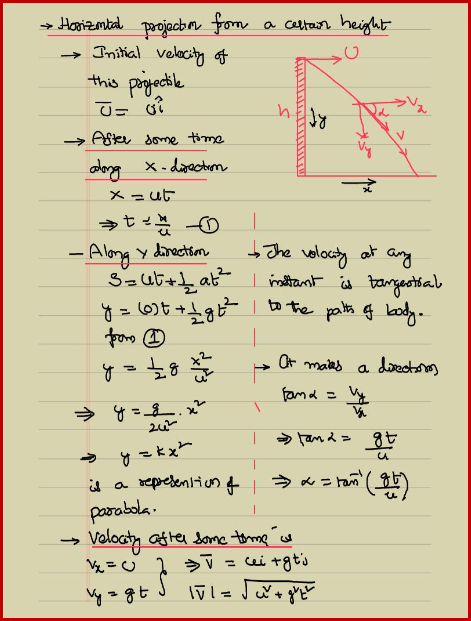 → Horizontal projection from a certain height
→ Initial velocity of
this projectile
U̅ = uî
→ After some time
along X-direction
x = ut
⇒ t = x/u —①
U
h
↓y
α
Vx
V
Vy
→
x
– Along Y direction
S = ut + 1/2 at²
y = (0)t + 1/2 gt²
from ①
y = 1/2 g x²/u²
⇒ y = g/2u² . x²
⇒ y = kx²
is a representation of
parabola.
→ The velocity at any
instant is tangential
to the path of body.
→ It makes a direction
tanα = Vy/Vx
⇒ tanα = gt/u
⇒ α = tan⁻¹(gt/u)
→ Velocity after some time is
Vx = U } ⇒ V̅ = ui + gtj
Vy = gt } |V̅| = √u² + g²t²